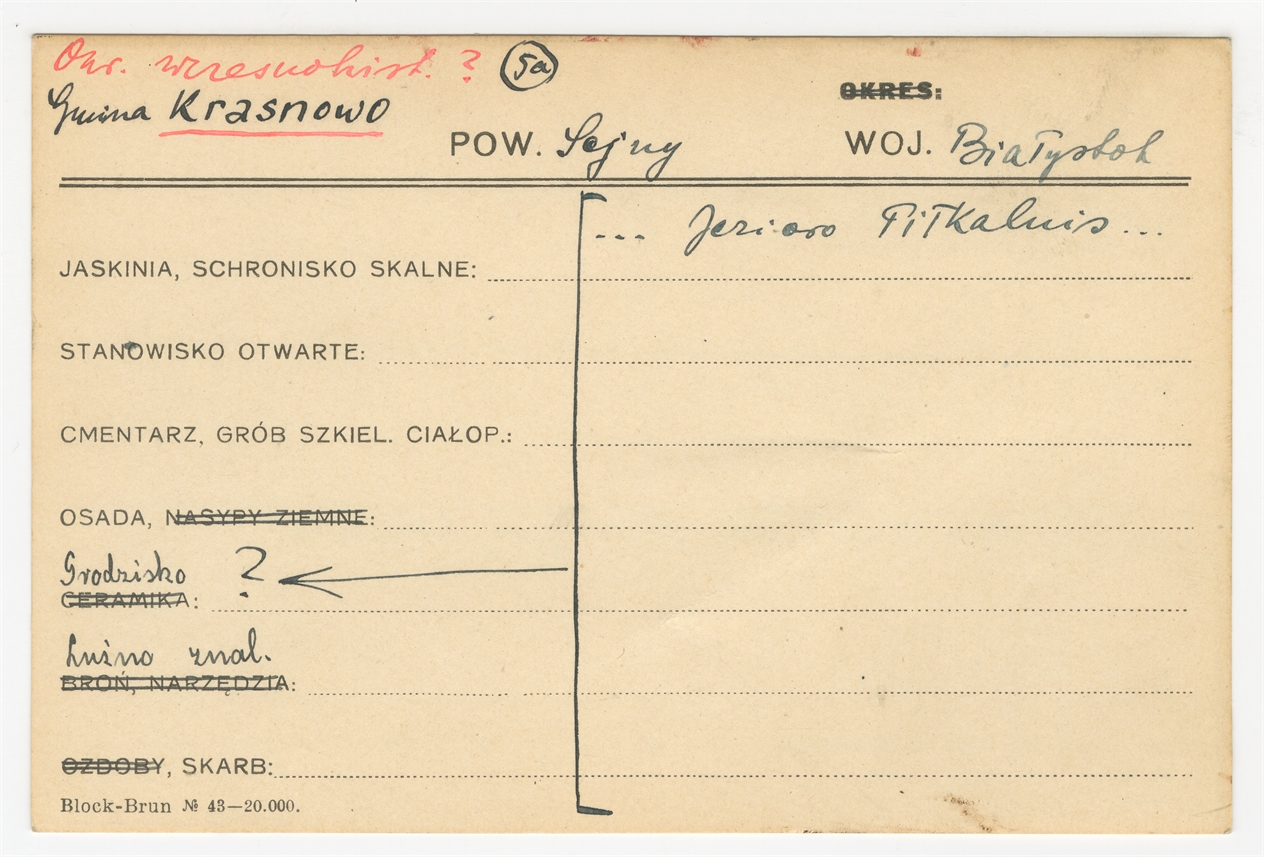 Okr. wczesnohist. ? 5a
Gmina Krasnowo
OKRES:
POW. Sejny WOJ. Białystok
... Jezioro Pilkalnis...
JASKINIA, SCHRONISKO SKALNE:
STANOWISKO OTWARTE:
CMENTARZ, GRÓB SZKIEL. CIAŁOP.:
OSADA, NASYPY ZIEMNE:
Grodzisko ?
CERAMIKA:
Luźno znal.
BROŃ, NARZĘDZIA:
OZDOBY, SKARB:
Block-Brun № 43—20.000.